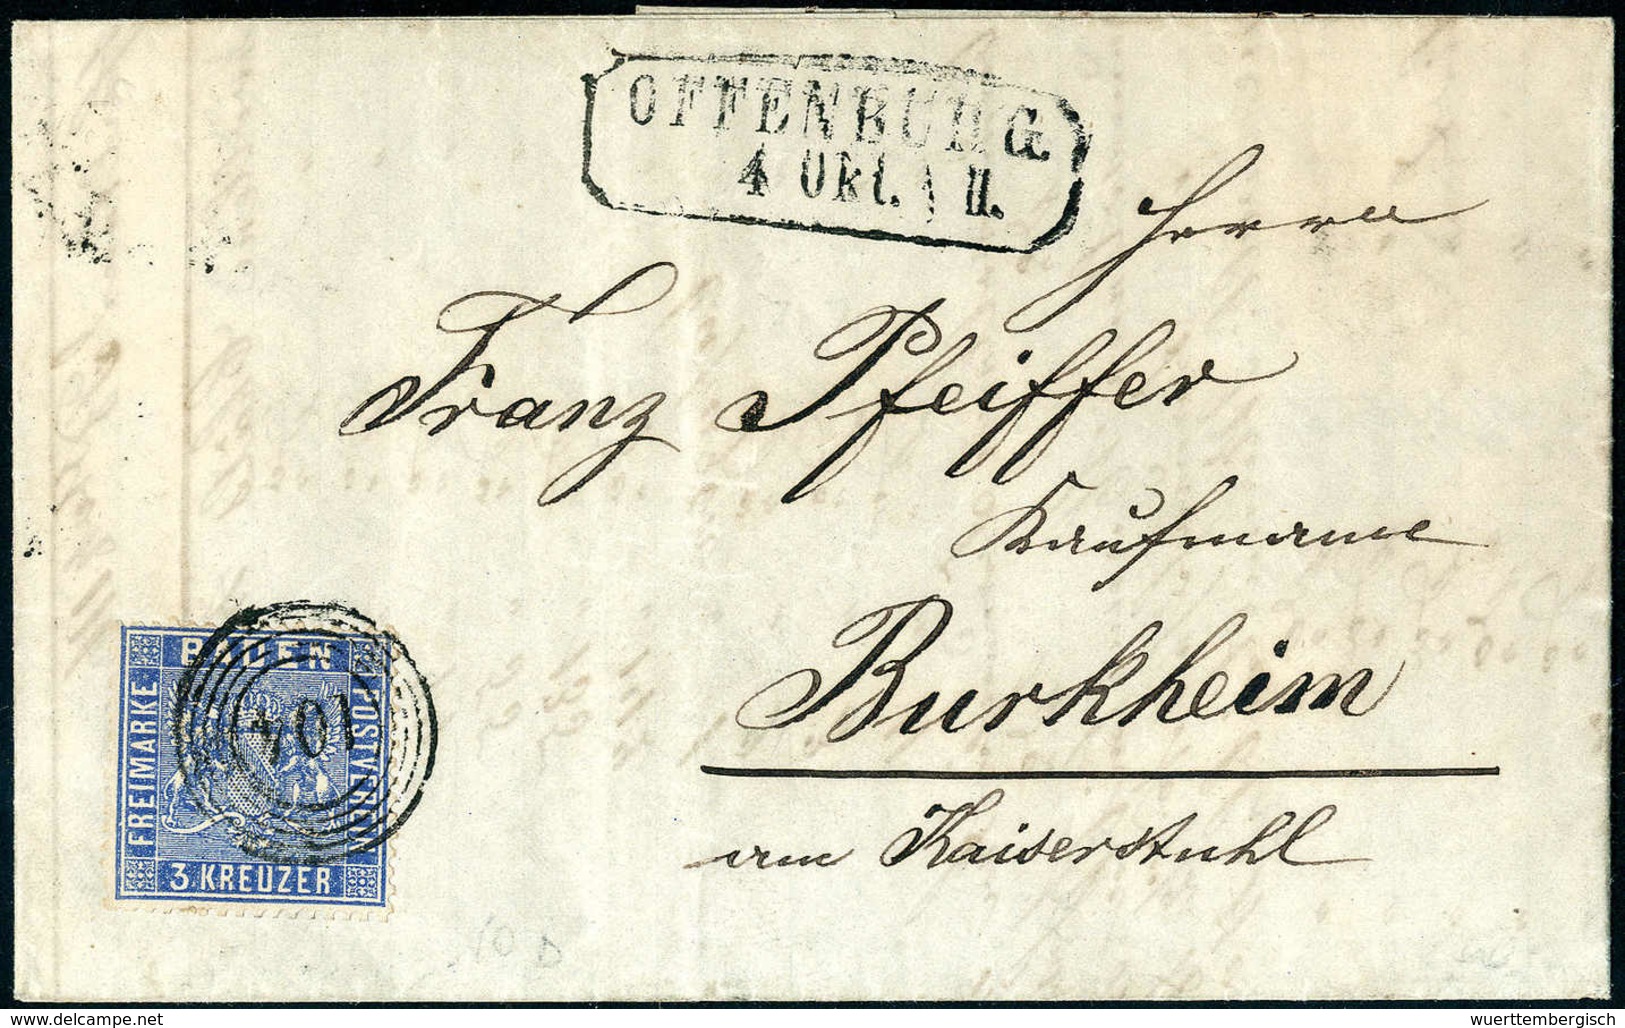 OFFENBURG.
4 Okt. II.
Herrn
Franz Pfeiffer
Kaufmann
Burkheim
am Kaiserstuhl
BADEN
FREIMARKE
POSTVEREIN
3 KREUZER
104
www.delcampe.net
wuerttembergisch